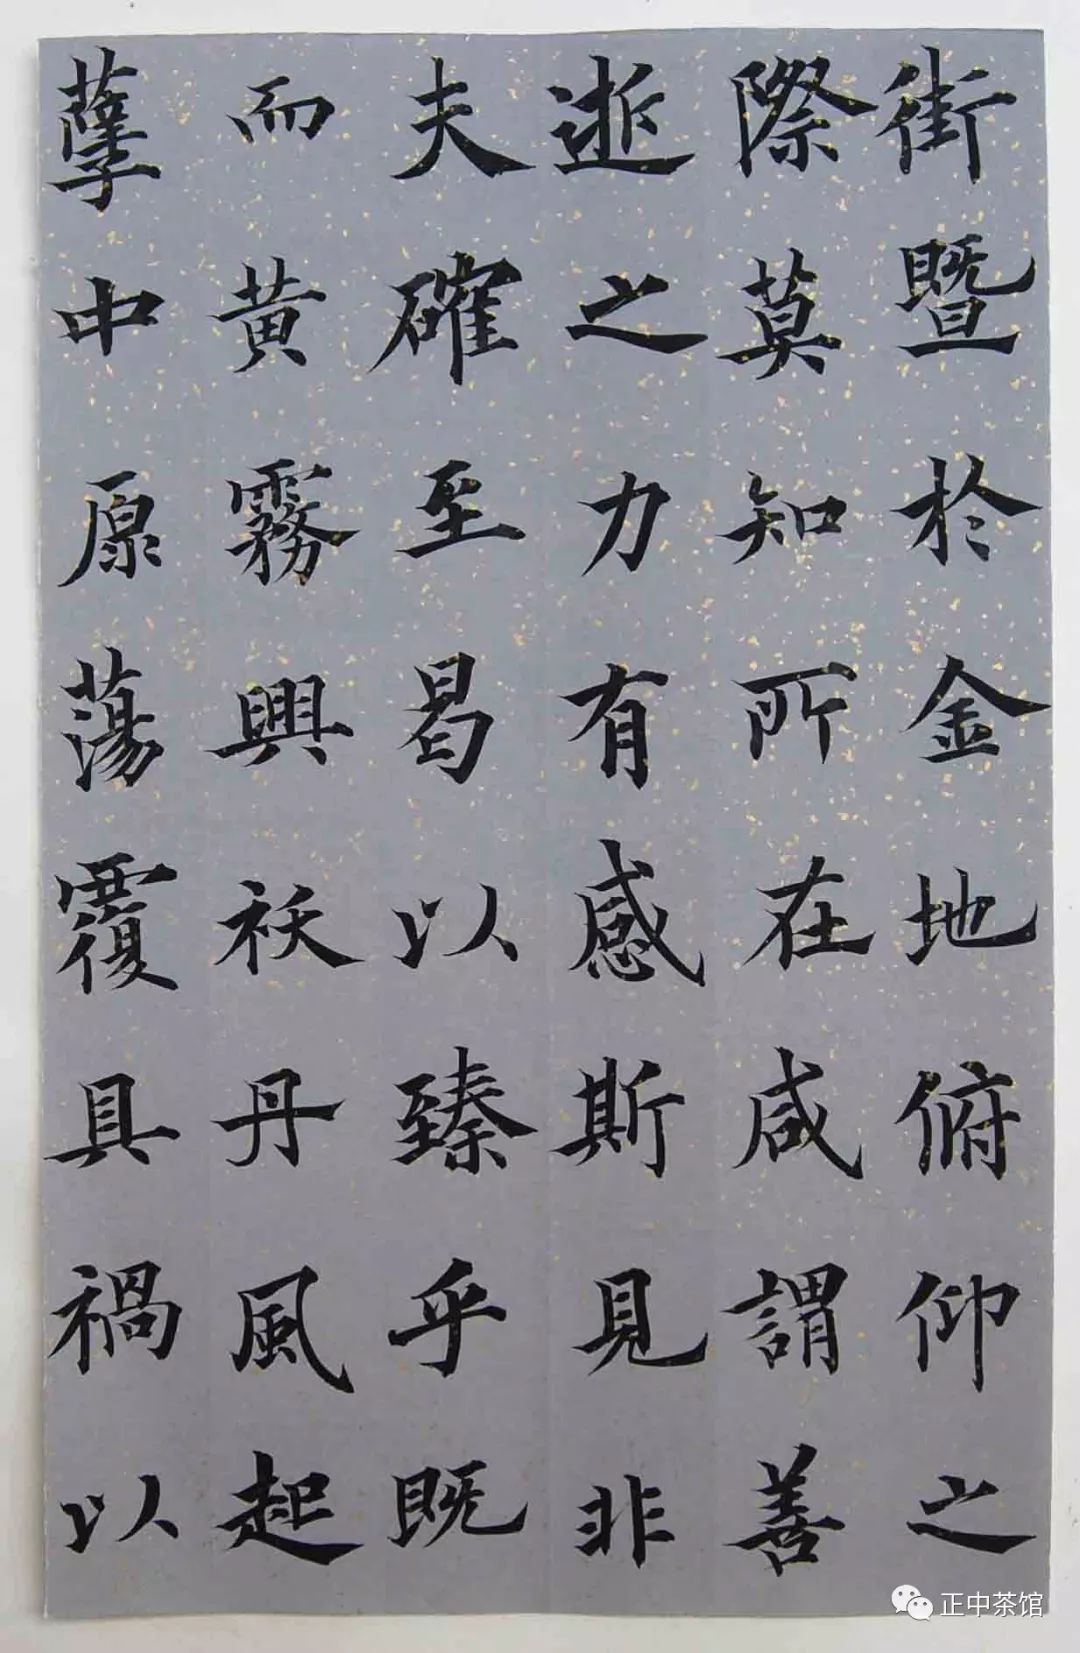 街暨於金地俯仰之
際莫知所在咸謂善
逝之力有感斯見非
夫確至曷以臻乎既
而黃霧興袄丹風起
孽中原蕩覆具禍以
正中茶馆